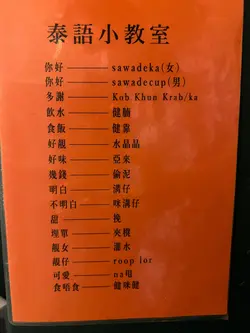 泰語小教室
你好——sawadeka(女)
你好——sawadecup(男)
多謝——Kob Khun Krab/ka
飲水——健腩
食飯——健靠
好靚——水晶晶
好味——亞來
幾錢——偷泥
明白——溝仔
不明白——咪溝仔
甜——挽
埋單——夾機
靚女——灑水
靚仔——roop lor
可愛——na唨
食唔食——健咪健